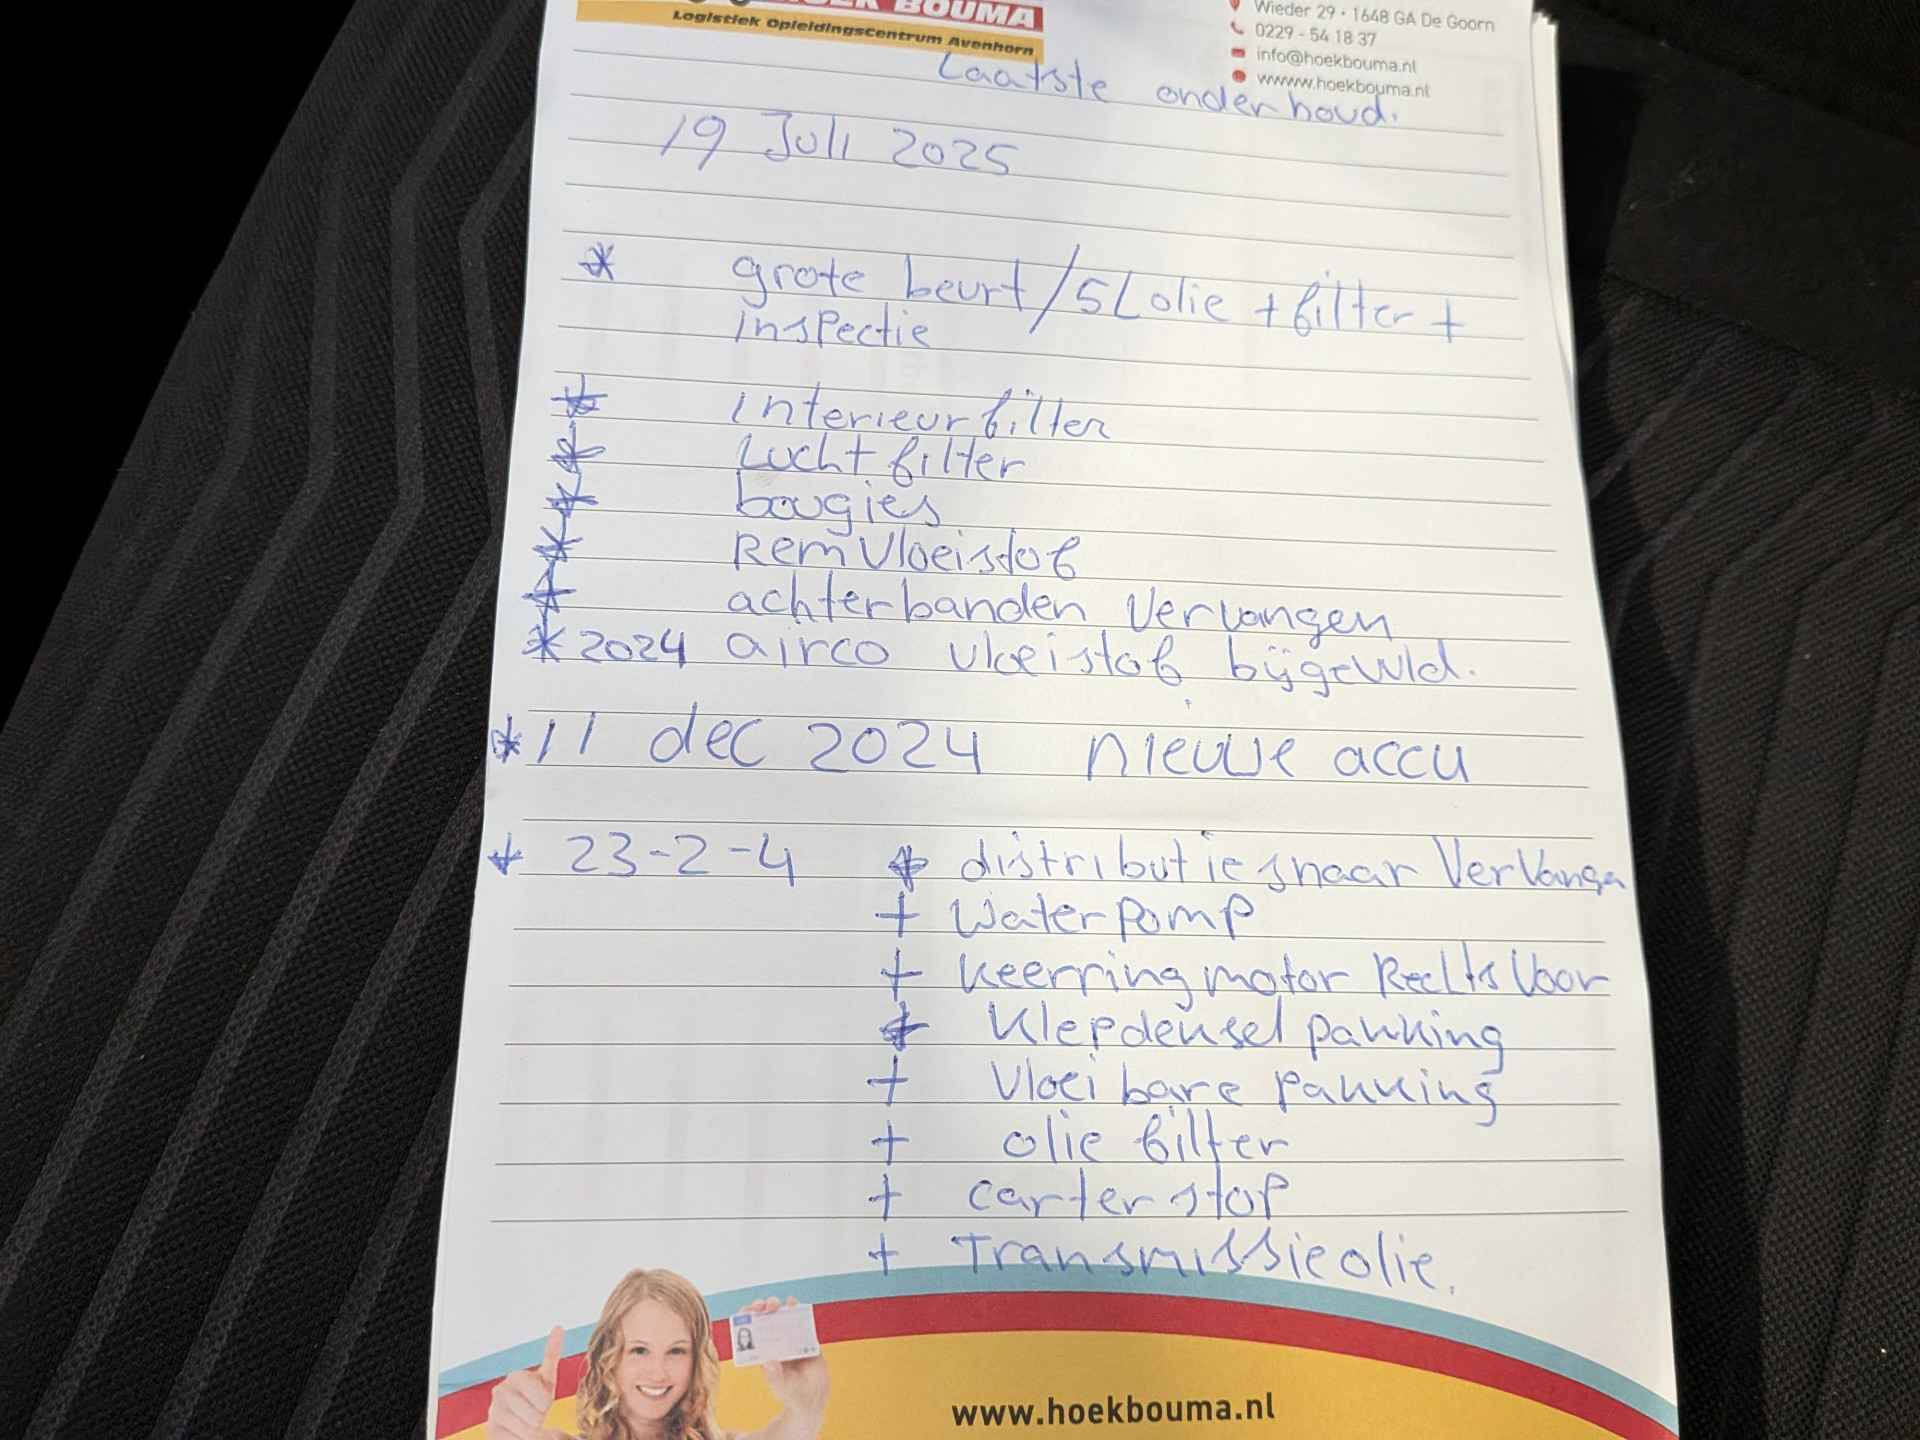 BOUMA
Logistiek OpleidingsCentrum Avenhorn
Wieder 29 • 1648 GA De Goorn
0229 - 54 18 37
info@hoekbouma.nl
wwww.hoekbouma.nl
Laatste onderhoud.
19 Juli 2025
* grote beurt/5L olie + filter +
inspectie
* interieurfilter
* Luchtfilter
* bougies
* Remvloeistof
* achterbanden vervangen
* 2024 airco vloeistof bijgevuld.
* 11 dec 2024 nieuwe accu
* 23-2-4 * distributiesnaar Vervangen
+ Waterpomp
+ Keerring motor Rechts Voor
+ Klepdeksel pakking
+ Vloeibare pakking
+ olie filter
+ carterstop
+ Transmissieolie.
www.hoekbouma.nl